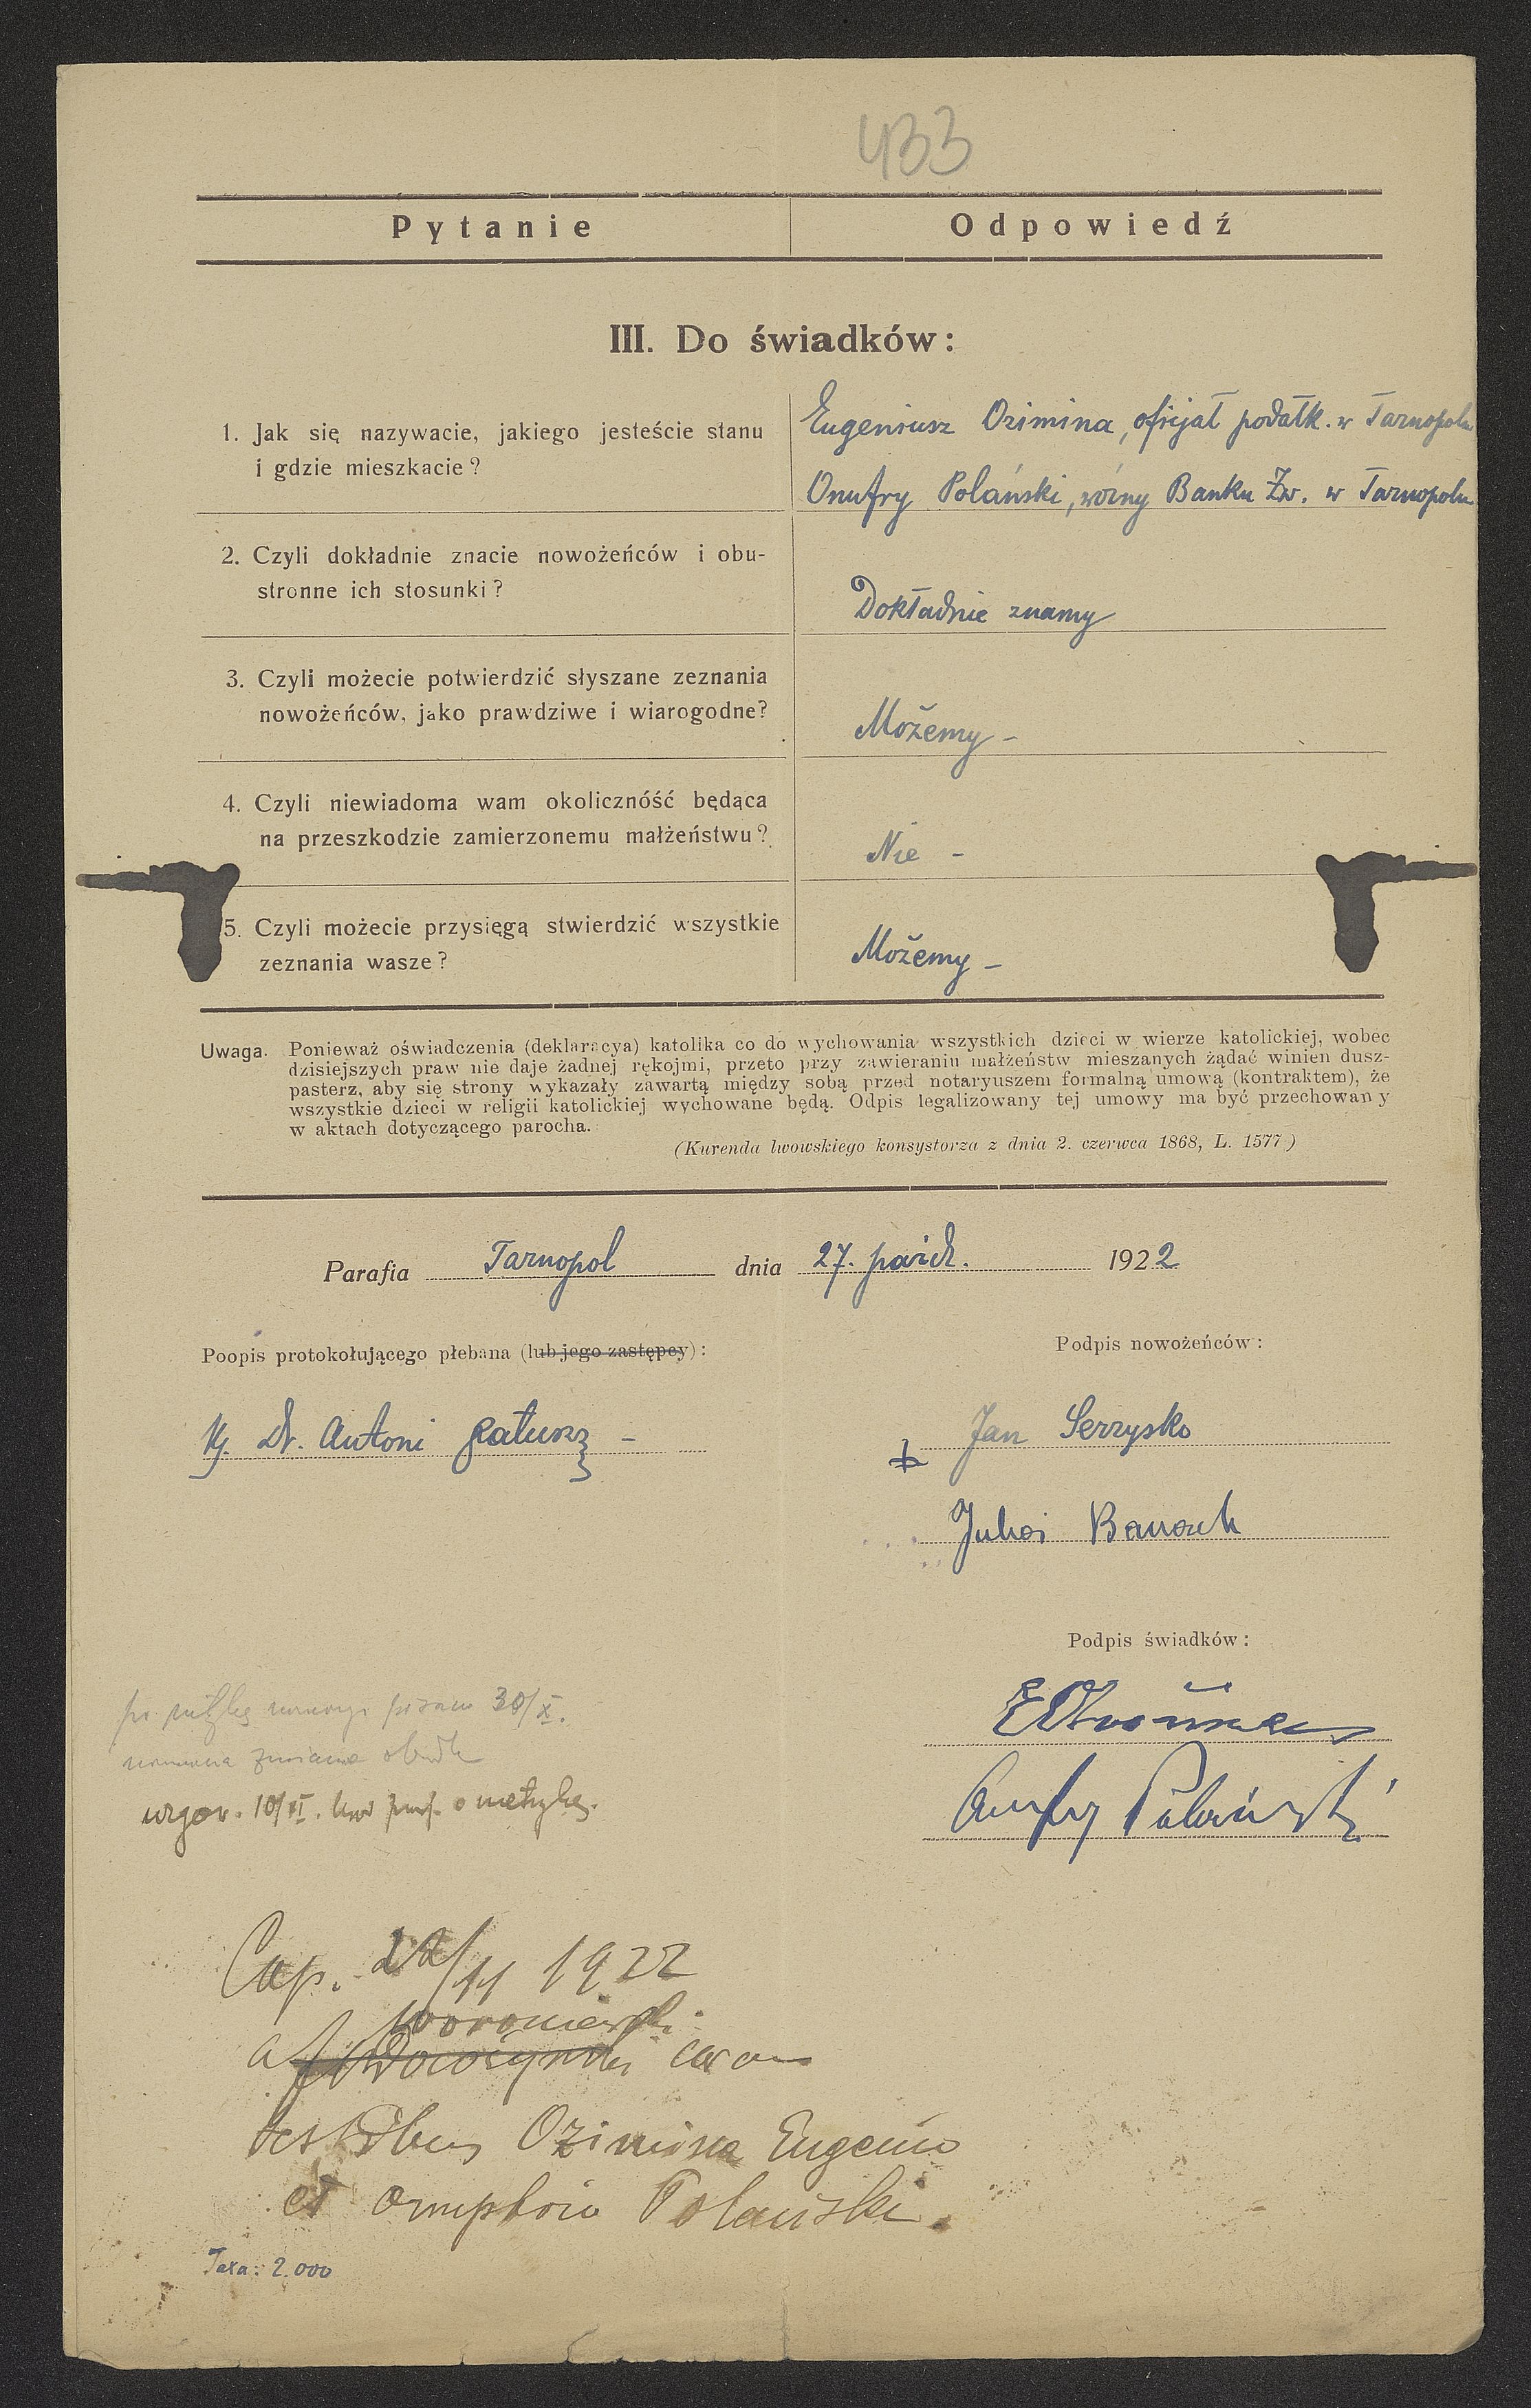 433
Pytanie
Odpowiedź
III. Do świadków:
1. Jak się nazywacie, jakiego jesteście stanu
i gdzie mieszkacie?
Eugeniusz Ozimina, oficjał podatk. w Tarnopolu
Onufry Polański, woźny Banku Zw. w Tarnopolu
2. Czyli dokładnie znacie nowożeńców i obu-
stronne ich stosunki?
Dokładnie znamy
3. Czyli możecie potwierdzić słyszane zeznania
nowożeńców, jako prawdziwe i wiarogodne?
Możemy –
4. Czyli niewiadoma wam okolicznóść będąca
na przeszkodzie zamierzonemu małżeństwu?
Nie –
5. Czyli możecie przysięgą stwierdzić wszystkie
zeznania wasze?
Możemy –
Uwaga. Ponieważ oświadczenia (deklaracya) katolika co do wychowania wszystkich dzieci w wierze katolickiej, wobec
dzisiejszych praw nie daje żadnej rękojmi, przeto przy zawieraniu małżeństw mieszanych żądać winien dusz-
pasterz, aby się strony wykazały zawartą między sobą przed notaryuszem formalną umową (kontraktem), że
wszystkie dzieci w religii katolickiej wychowane będą. Odpis legalizowany tej umowy ma być przechowany
w aktach dotyczącego parocha.
(Kurenda lwowskiego konsystorza z dnia 2. czerwca 1868, L. 1577)
Parafia Tarnopol dnia 27. paźdz. 1922
Poopis protokołującego plebana (lub jego zastępcy):
Podpis nowożeńców:
X. Dr. Antoni Ratusz –
Jan Serzysko
Julia Banach
Podpis świadków:
Onufry Polański
30/X.
zmiana
10/XI. o metrykę.
Cop. 22/11 1922
a Woroniecki
coram
testibus Ozimina Eugenio
et Onuphrio Polański.
Taxa: 2.000